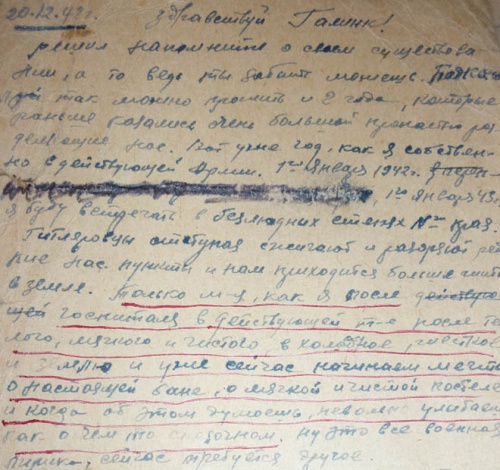 20.12.42 г. Здравствуй Галинк!
решил напомнить о своем существова
нии, а то ведь ты забыть можешь.
так можно прожить и 2 года, которые
раньше казались очень большой пропастью раз
деляющие нас. Вот уже год, как я собствен-
но в действующей Армии. 1го Января 1942г. я
1го Января 43г.
я буду встречать в безлюдных степях края.
Гитлеровцы отступая сжигают и разоряют
нас. пункты и нам приходится больше жить
в земле. Только м-ц, как я после
госпиталя в действующей т-е после те
лого, мягкого и чистого, в холодное,
и землю и уже сейчас начинаем мечта
о настоящей бане, о мягкой и чистой постеле
и когда об этом думаешь, невольно улыбаеш
как о чем то сказочном. Ну это все военная
лирика, сейчас требуется другое.